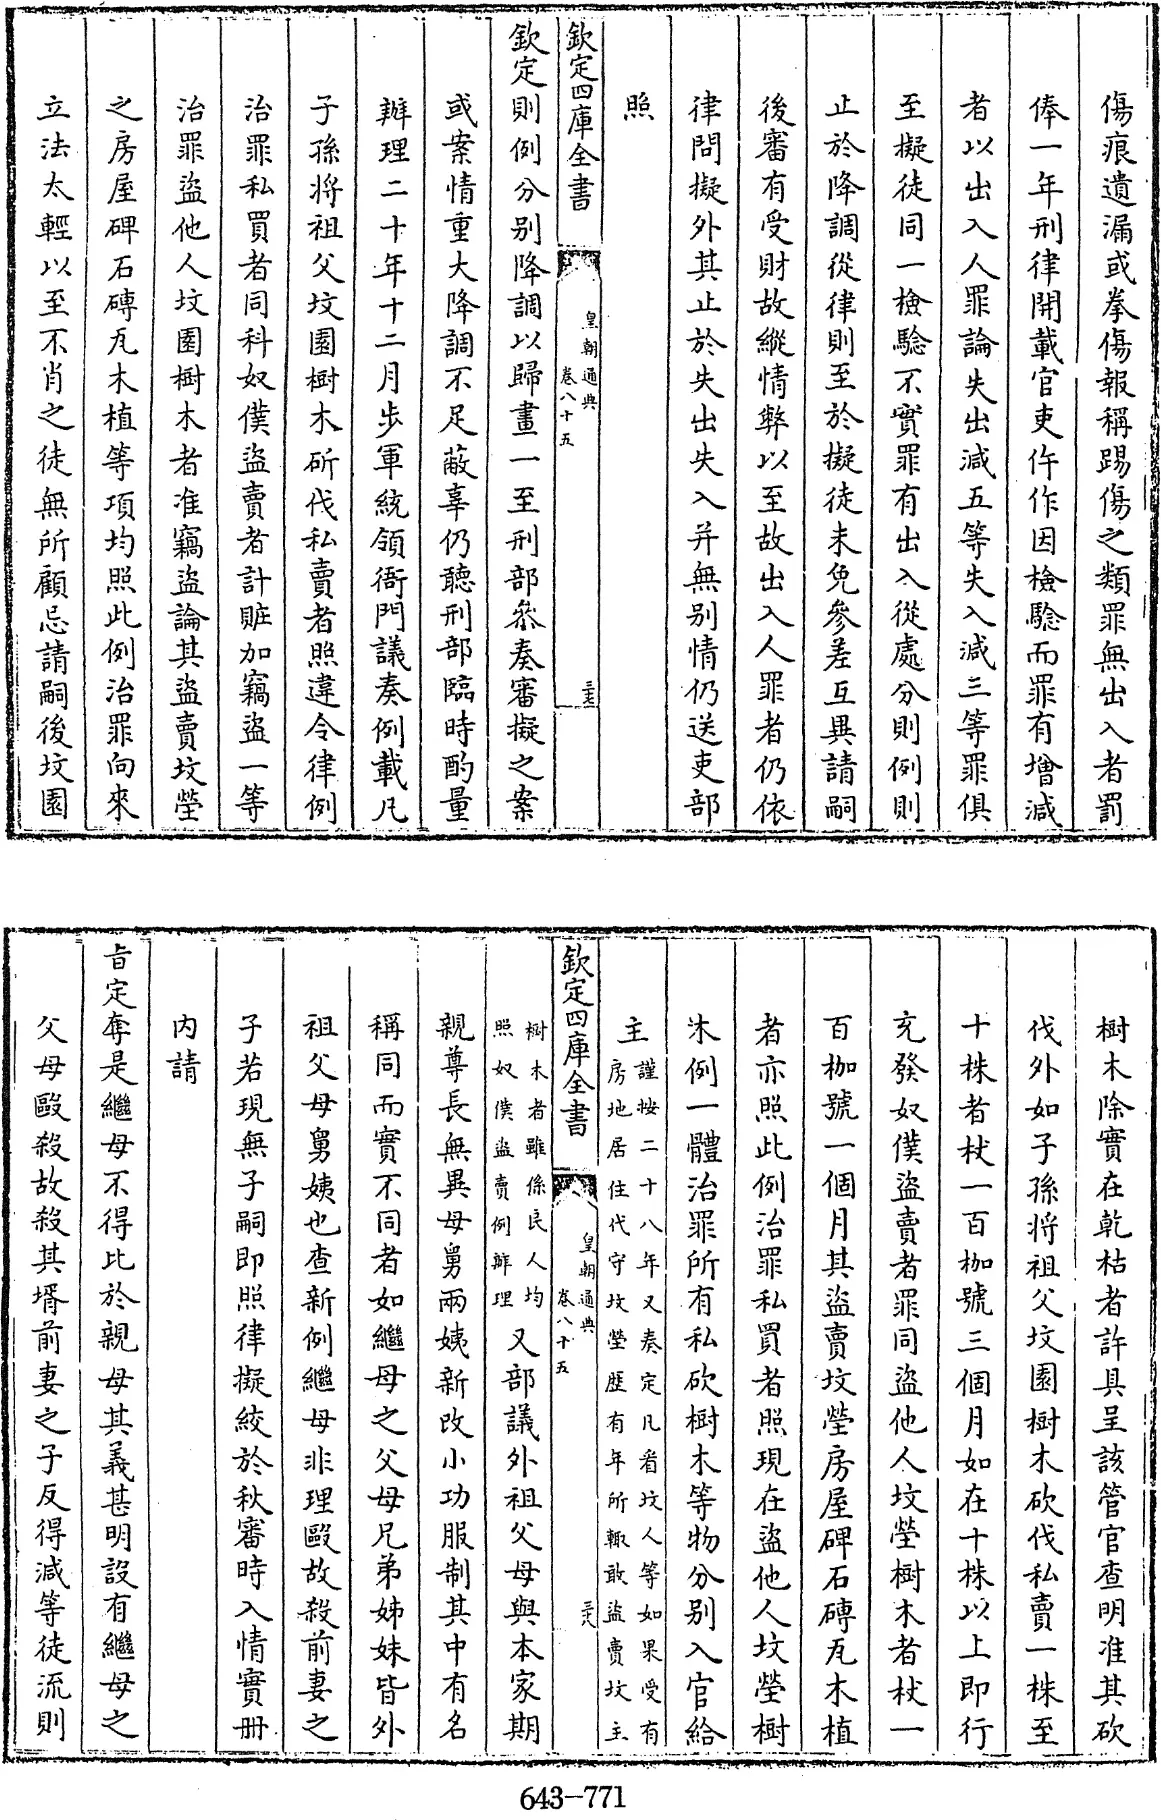 傷痕遺漏或拳傷報稱踢傷之類罪無出入者罰
俸一年刑律開載官吏仵作因檢驗而罪有增減
者以出入人罪論失出減五等失入減三等罪俱
至擬徒同一檢驗不實罪有出入從處分則例則
止於降調從律則至於擬徒未免參差互異請嗣
後審有受財故縱情弊以至故出入人罪者仍依
律問擬外其止於失出失入并無別情仍送吏部
照
欽定四庫全書
皇朝通典
卷八十五
三七
欽定則例分別降調以歸畫一至刑部叅奏審擬之案
或案情重大降調不足蔽辜仍聽刑部臨時酌量
辦理二十年十二月步軍統領衙門議奏例載凡
子孫將祖父坟園樹木斫伐私賣者照違令律例
治罪私買者同科奴僕盜賣者計贓加竊盜一等
治罪盜他人坟園樹木者准竊盜論其盜賣坟塋
之房屋碑石磚瓦木植等項均照此例治罪向來
立法太輕以至不肖之徒無所顧忌請嗣後坟園
樹木除實在乾枯者許具呈該管官查明准其砍
伐外如子孫將祖父坟園樹木砍伐私賣一株至
十株者杖一百枷號三個月如在十株以上即行
充發奴僕盜賣者罪同盜他人坟塋樹木者杖一
百枷號一個月其盜賣坟塋房屋碑石磚瓦木植
者亦照此例治罪私買者照現在盜他人坟塋樹
木例一體治罪所有私砍樹木等物分別入官給
主
謹按二十八年又奏定凡看坟人等如果受有
房地居住代守坟塋歷有年所輙敢盜賣坟主
欽定四庫全書
皇朝通典
卷八十五
三八
樹木者雖係民人均
照奴僕盜賣例辦理
又部議外祖父母與本家期
親尊長無異母舅兩姨新改小功服制其中有名
稱同而實不同者如繼母之父母兄弟姊妹皆外
祖父母舅姨也查新例繼母非理毆故殺前妻之
子若現無子嗣即照律擬絞於秋審時入情實冊
內請
旨定奪是繼母不得比於親母其義甚明設有繼母之
父母毆殺故殺其壻前妻之子反得減等徒流則
643-771